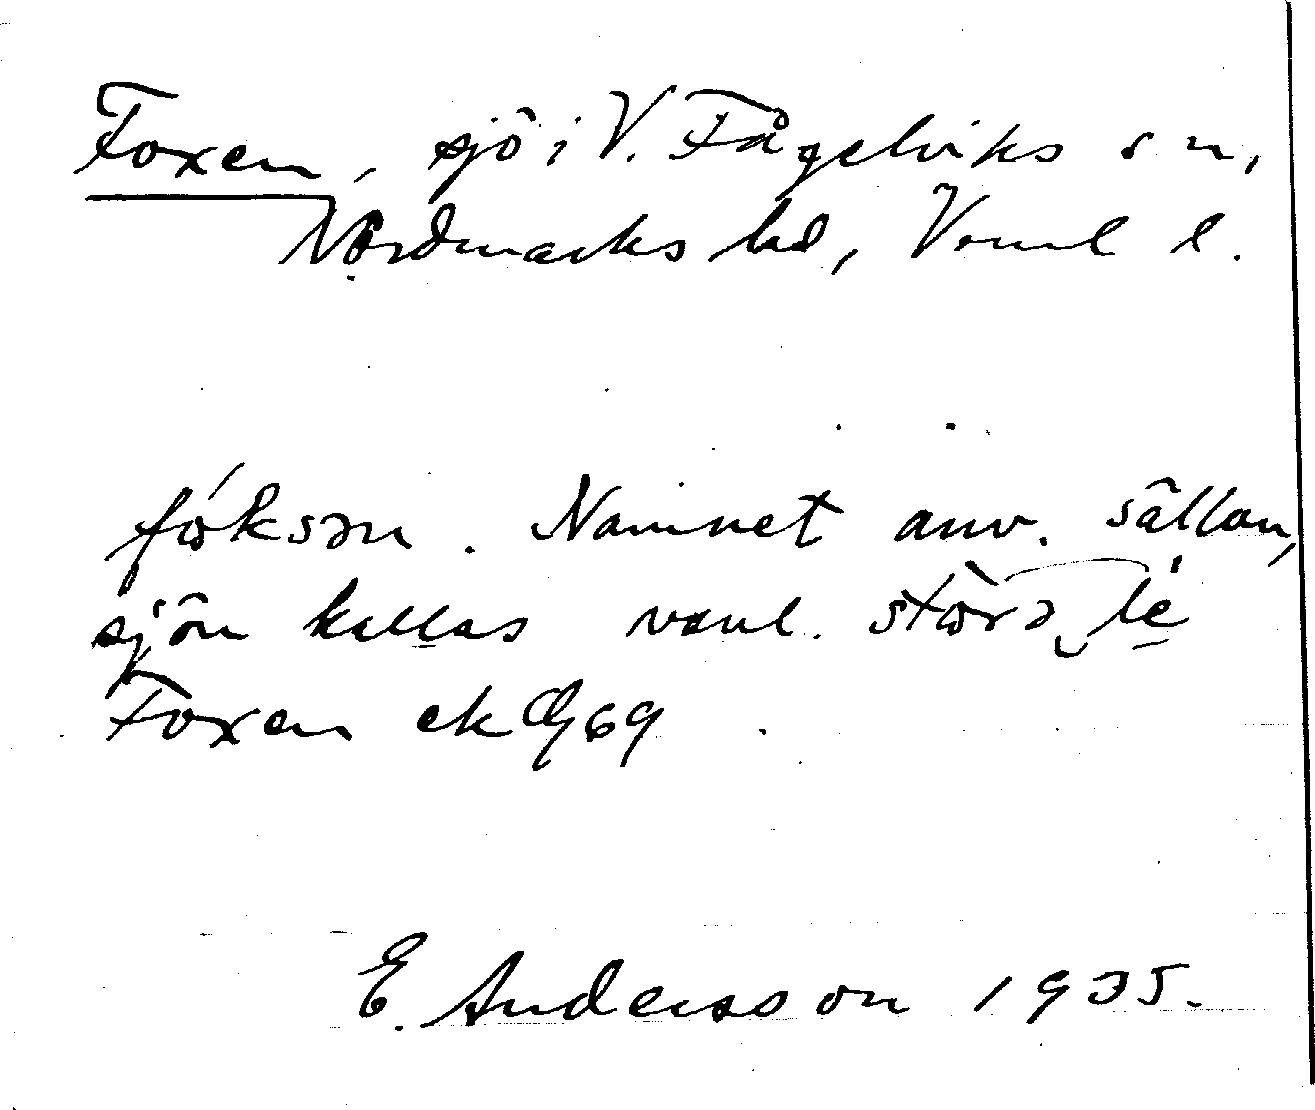 Foxen, sjö i V. Fågelviks sn,
Nordmarks hd, Vrml l.
fóksən. Namnet anv. sällan,
sjön kallas vanl. stòrə lé
Foxen ek
E. Andersson 1935.